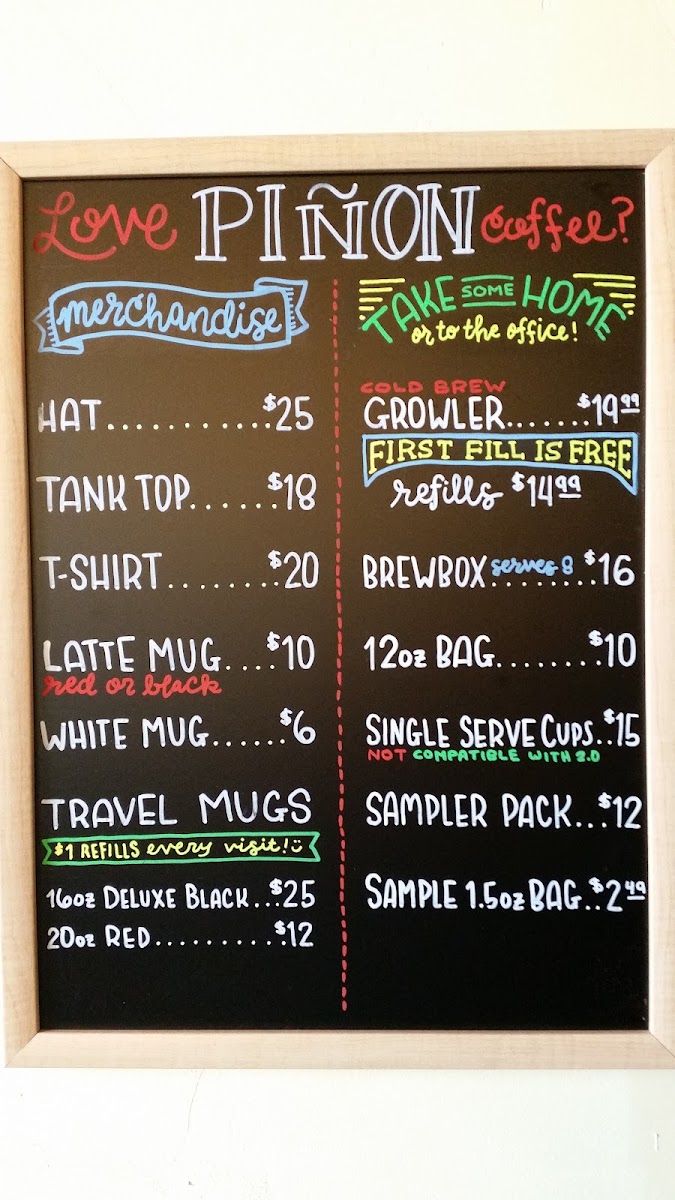 Love PIÑON coffee?
merchandise
HAT............$25
TANK TOP......$18
T-SHIRT........$20
LATTE MUG....$10
red or black
WHITE MUG......$6
TRAVEL MUGS
$1 REFILLS every visit!
16oz DELUXE BLACK...$25
20oz RED..........$12
TAKE SOME HOME
or to the office!
COLD BREW
GROWLER.......$19.99
FIRST FILL IS FREE
refills $14.99
BREWBOX serves 8........$16
12oz BAG........$10
SINGLE SERVE CUPS..$15
NOT COMPATIBLE WITH 2.0
SAMPLER PACK...$12
SAMPLE 1.5oz BAG..$2.49